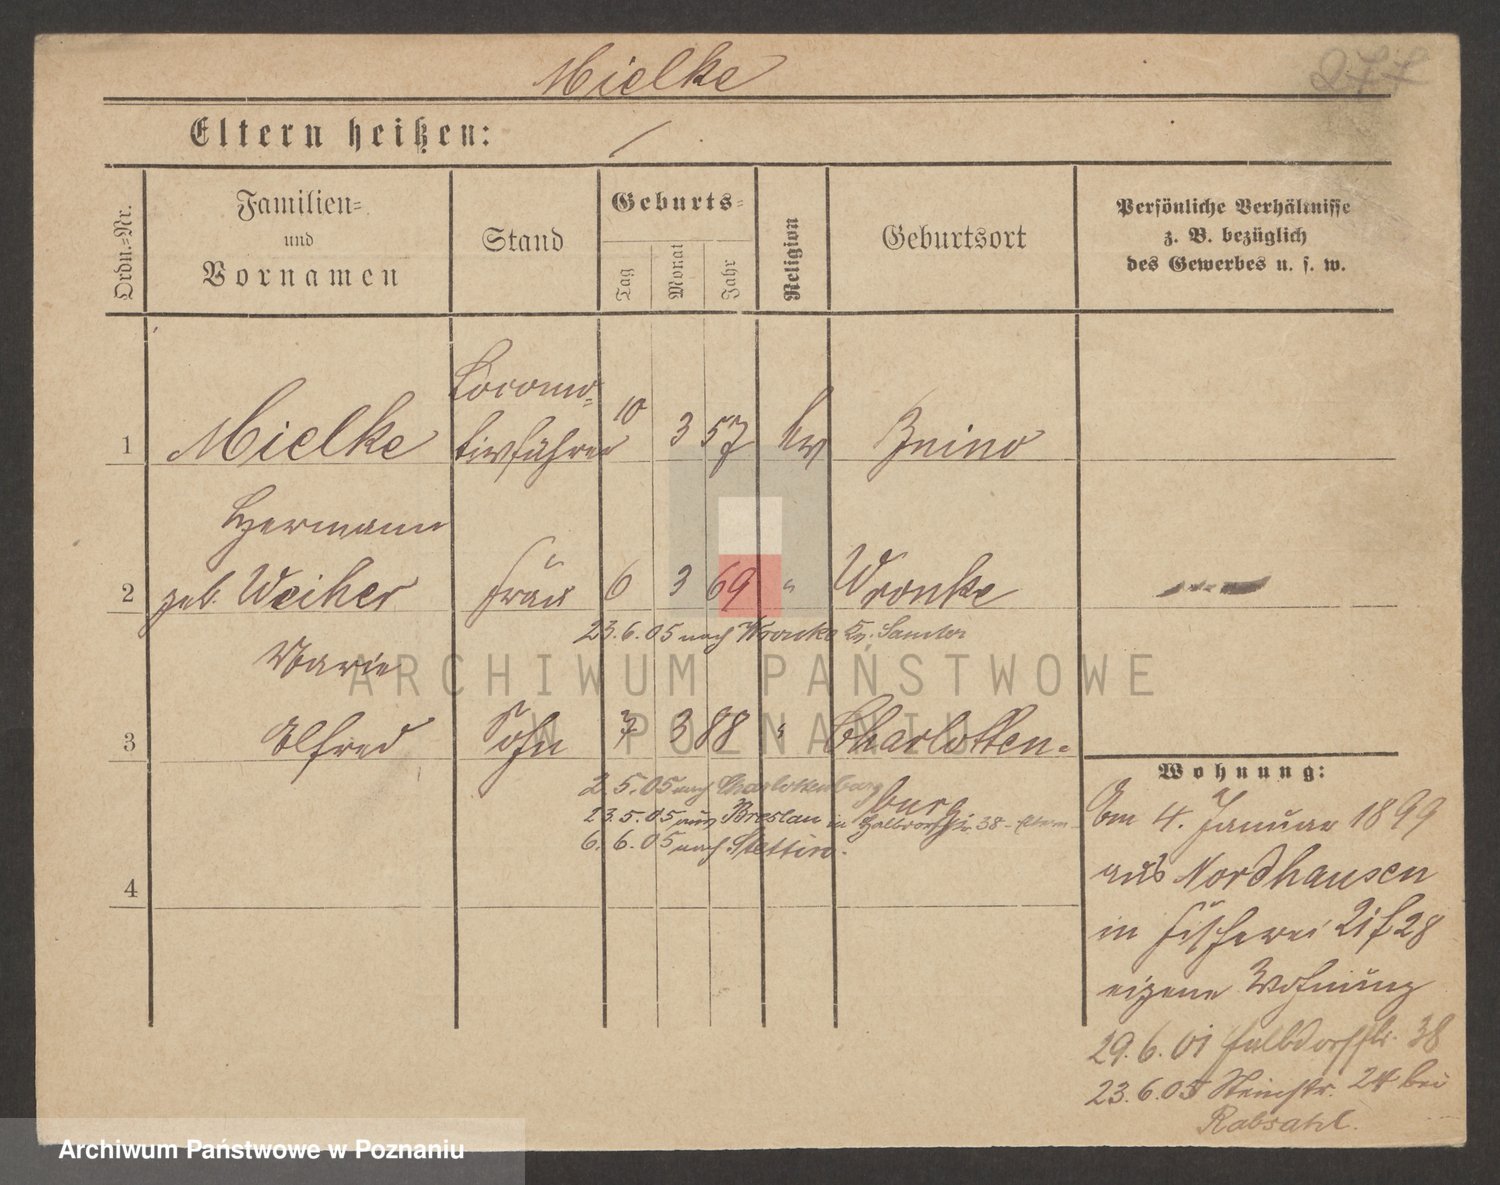 Mielke
277
Eltern heißen: /.
Ordn.=Nr.
Familien=
und
Vornamen
Stand
Geburts=
Tag
Monat
Jahr
Religion
Geburtsort
Persönliche Verhältnisse
z. B. bezüglich
des Gewerbes u. s. w.
Locomo=
1 Mielke tivführer 10 3 57 ev Znino
Hermann
2 geb. Weiher Frau 6 3 69 " Wronke
23.6.05 nach Wronke Kr. Samter
Marie
3 Alfred Sohn 7 3 88 " Charlotten=
burg
2.5.05 nach Charlottenburg
23.5.05 aus Breslau in Halbdorfstr. 38 - Eltern
6.6.05 nach Stettin.
4
Wohnung:
Am 4. Januar 1899
aus Nordhausen
in Fischerei 21/28
eigene Wohnung
29.6.01 Halbdorfstr. 38
23.6.05 Steinstr. 24 bei
Rabsahl.
ARCHIWUM PAŃSTWOWE
W POZNANIU
Archiwum Państwowe w Poznaniu